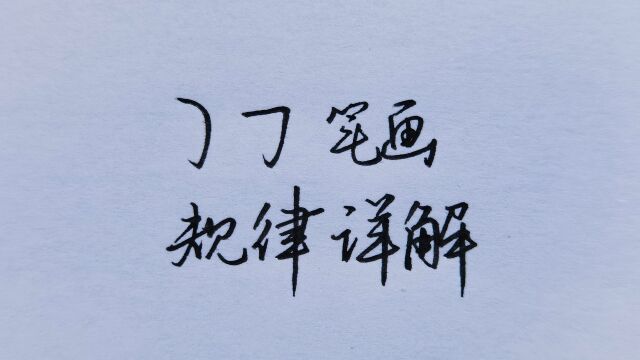 ㇆㇆笔画
规律详解